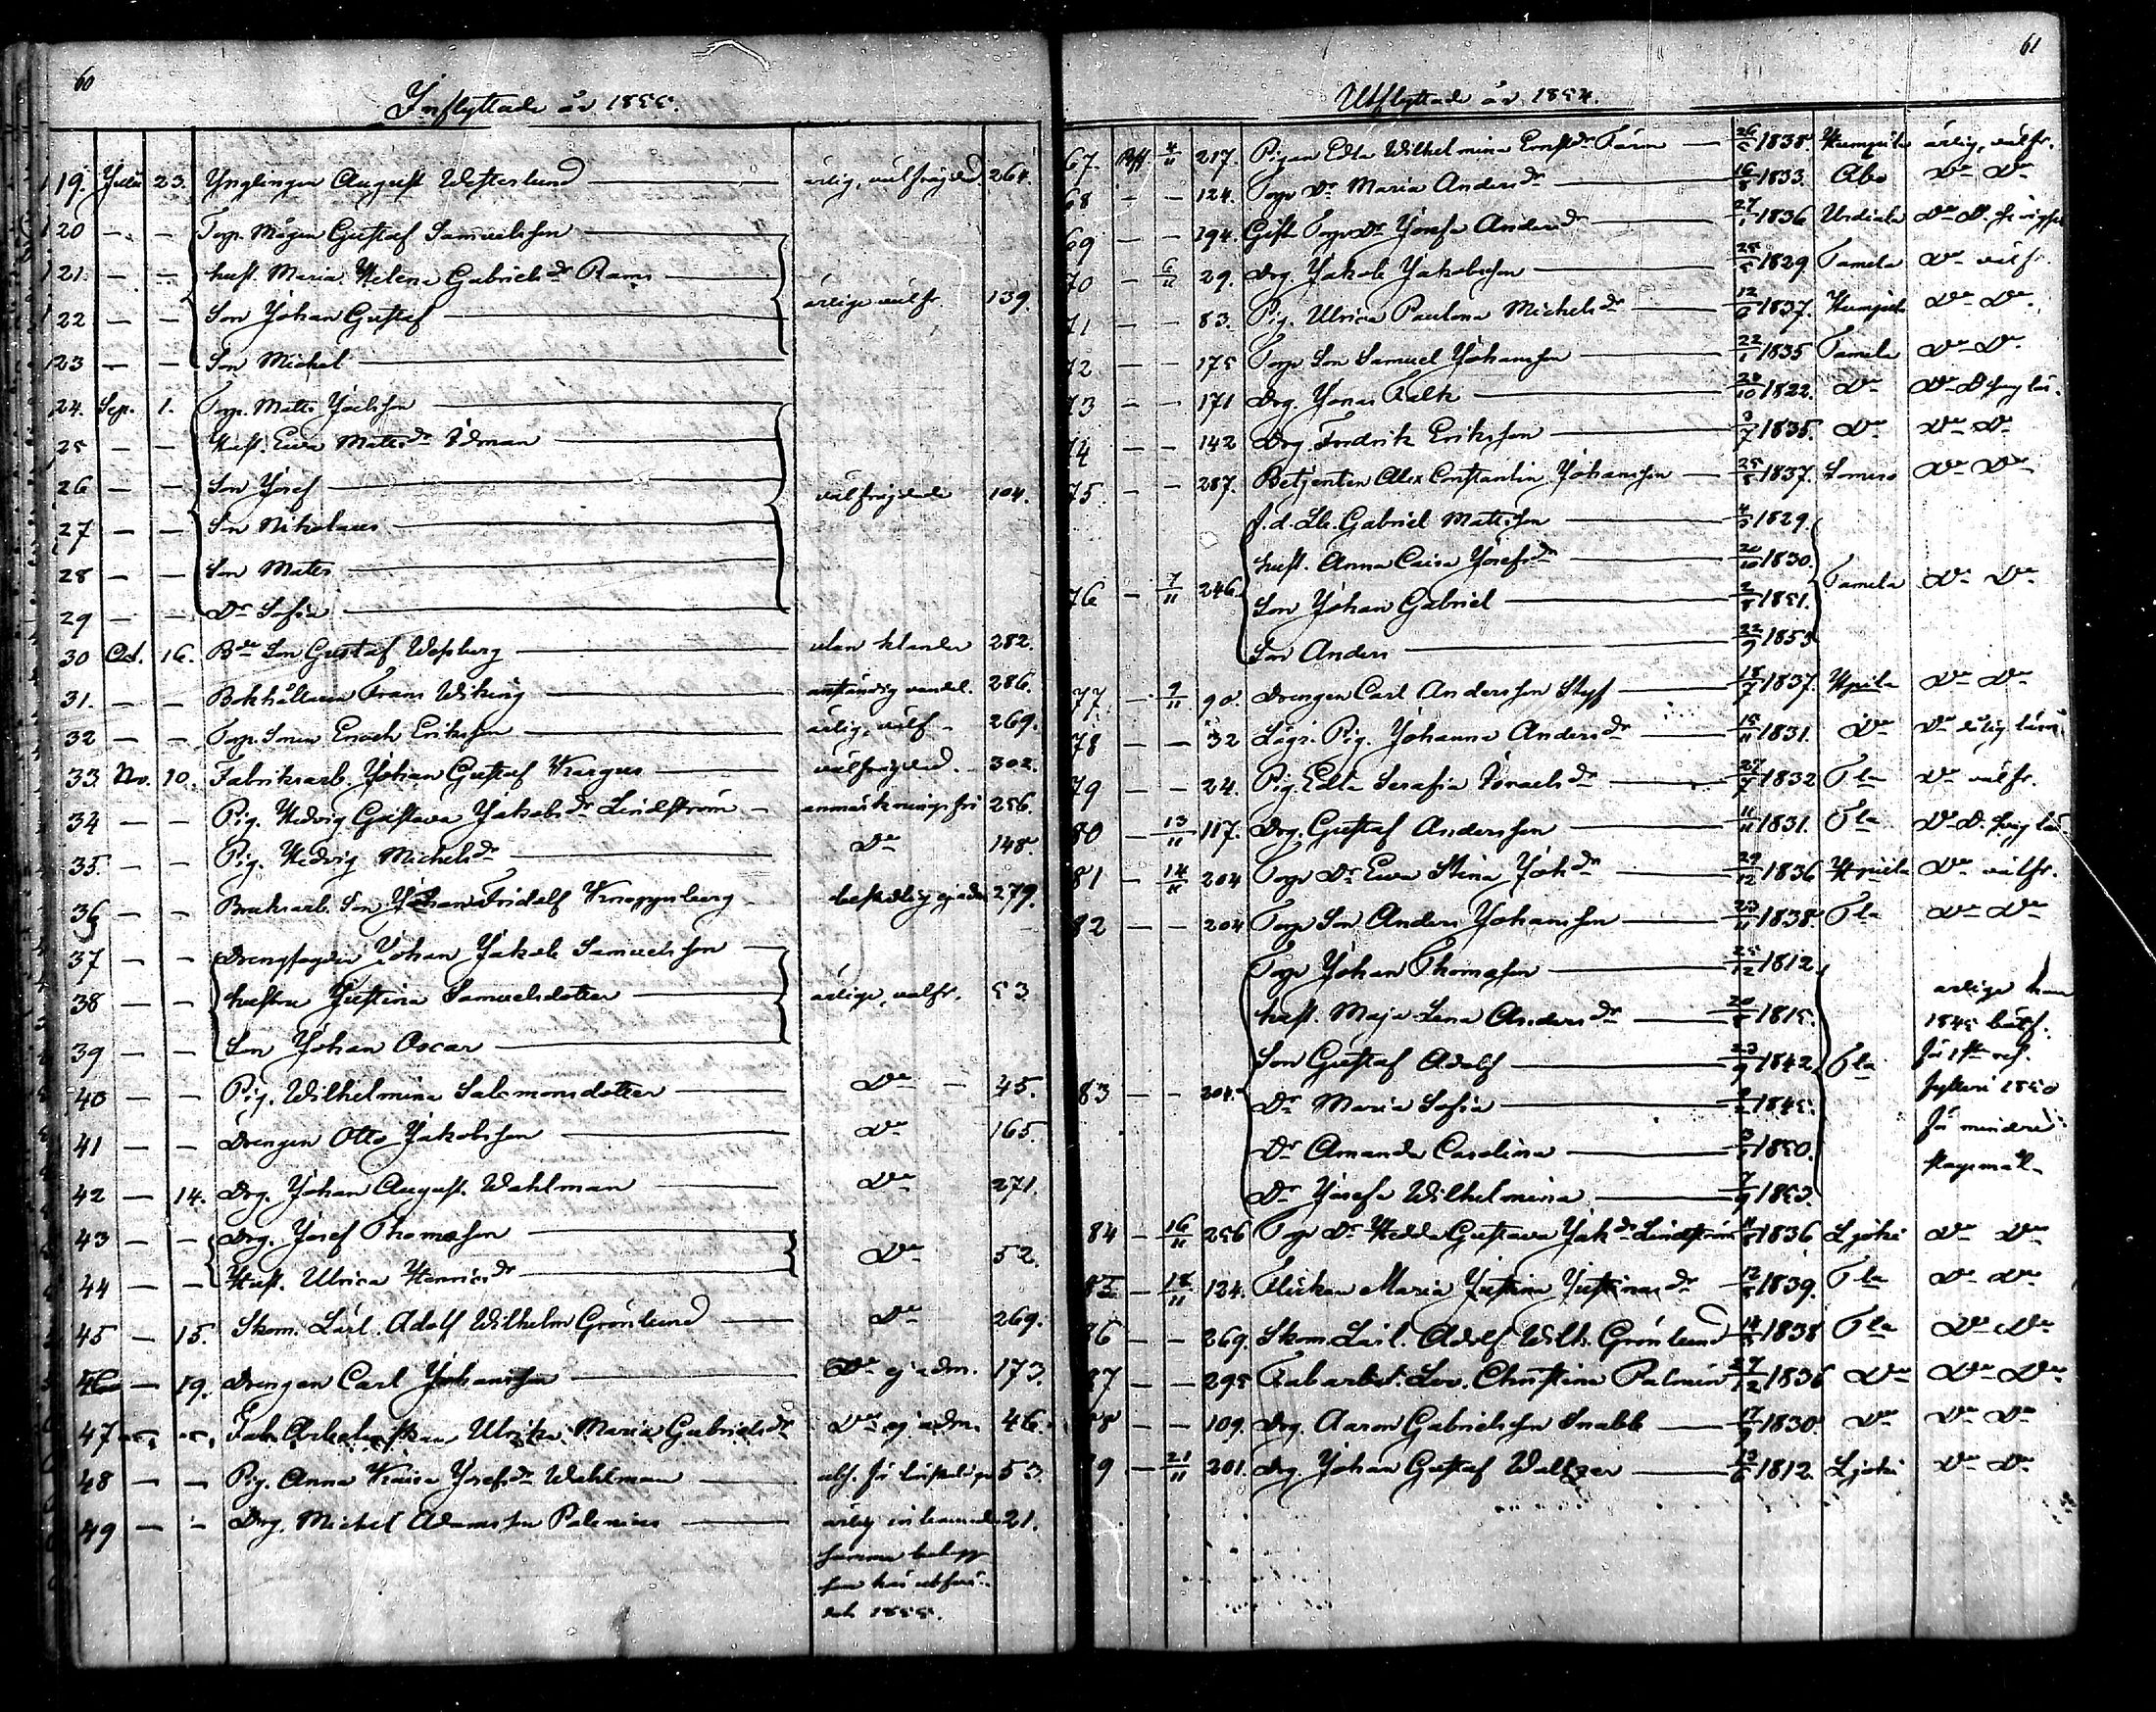 60
Inflyttade år 1855.
19. Julii 23. Ynglingen August Westerlund ärlig, välfrejdad 264.
20 — — Torp. Mågen Gustaf Samuelsson
21. — — hust. Maria Helena Gabrielsdr Rams
22 — — Son Johan Gustaf ärlige välfr. 139.
23 — — Son Michel
24. Sep. 1. Torp. Matts Joelsson
25 — — Hust. Ewa Mattsdr Idman
26 — — Son Josef välfrejdade 104.
27 — — Son Nikolaus
28 — — Son Matts
29 — — Dr Sofia
30 Oct. 16. Bde Son Gustaf Wessberg utan klander 282.
31. — — Bokhållaren Frans Wiking anständig vandel. 286.
32 — — Torp. Sonen Enoch Eriksson ärlig, välf. 269.
33. Nov. 10. Fabriksarb. Johan Gustaf Kargus välfrejdad. 302.
34 — — Pig. Hedvig Gustava Jakobsdr Lindström anmärkningsfri 256.
35. — — Pig. Hedvig Michelsdr Do 148.
36 — — Bruksarb. Son Johan Fridolf Knappsberg 279.
37 — — Drengfogden Johan Jakob Samuelsson
38 — — hustru Justina Samuelsdotter ärlige, välfr. 53
39 — — Son Johan Oscar
40 — — Pig. Wilhelmina Salomonsdotter Do 45.
41 — — Drengen Otto Jakobsson Do 165.
42 — 14. Drg. Johan August Wahlman Do 271.
43 — — Drg. Josef Thomasson
44 — — Hust. Ulrica Henricsdr Do 52.
45 — 15. Skom. Lärl. Adolf Wilhelm Grönlund Do 269.
46 — 19. Drengen Carl Johansson Do ej adm. 173.
47 — — Fab. Ulrika Maria Gabrielsdr Do ej adm. 46.
48 — — Pig. Anna Kaisa Josefsdr Wahlman abs. för 53.
49 — — Drg. Michel Adamsson Palenius ärlig 21.
samma
1855.
61
Utflyttade år 1854.
67. 4/11 217. Pigan Edla Wilhelmina Ernstdr Färm 26/5 1838. Humppila ärlig, välfr.
68 — — 124. Torp Dr Maria Andersdr 16/8 1833. Åbo Do Do
69 — — 194. Gift Torp Dr Josefa Andersdr 27/1 1836 Urdiala Do D.
70 — 6/11 29. Drg Jakob Jakobsson 25/5 1829 Tamela Do välfr.
71 — — 83. Pig. Ulrica Paulina Michelsdr 12/6 1837. Humppila Do Do
72 — — 175 Torp Son Samuel Johansson 22/1 1835 Tamela Do Do
73 — — 171 Drg. Jonas Falk 24/10 1822. Do Do D. svag läs.
74 — — 142 Drg. Fredrik Eriksson 3/7 1835. Do Do Do
75. — — 287. Betjenten Alex Constantin Johansson 25/5 1837. Somero Do Do
f.d. Ll. Gabriel Mattsson 4/3 1829.
hust. Anna Caisa Josefsdr 20/10 1830.
76 — 7/11 246 Son Johan Gabriel 2/8 1851. Tamela Do Do
Son Anders 22/9 1853
77 — 9/11 90. Drengen Carl Andersson Styf 18/7 1837. Hpila Do Do
78 — — 32 Lägr. Pig. Johanna Andersdr 15/11 1831. Do Do
79 — — 24. Pig Edla Serafia Israelsdr 27/7 1832 Tla Do välfr.
80 — 13/11 117. Drg. Gustaf Andersson 11/11 1831. Tla Do D. svag läs
81 — 14/11 204 Torp Dr Ewa Stina Johdr 29/12 1836 Hpiila Do välfr.
82 — — 204 Torp Son Anders Johansson 23/11 1838. Tla Do Do
Torp Johan Thomasson 25/12 1812
hust. Maja Lena Andersdr 20/8 1815. ärlige han
Son Gustaf Adolf 23/9 1842 Tla 1845 bötf.
83 — — 204. Dr Maria Sofia 1845. för 1sta res.
Dr Amanda Carolina 3/5 1850. fylleri 1850
Dr Josefa Wilhelmina 7/9 1853. för mindre
slagsmål
84 — 16/11 256 Torp Dr Hedda Gustava Jakdr Lindström 11/8 1836 Ljoki Do Do
85 — 18/11 124. Flickan Maria Justina Justinasdr 12/5 1839. Tla Do Do
86 — — 269. Skom. Lärl. Adolf Wilh. Grönlund 14/5 1838 Tla Do Do
87 — — 295 Fabarbet. Lov. Christina Palmén 27/12 1836 Do Do Do
88 — — 109. Drg. Aaron Gabrielsson Snabb 17/9 1830. Do Do Do
89 — 21/11 201. Drg. Johan Gustaf Waltzer 13/6 1812. Ljoki Do Do